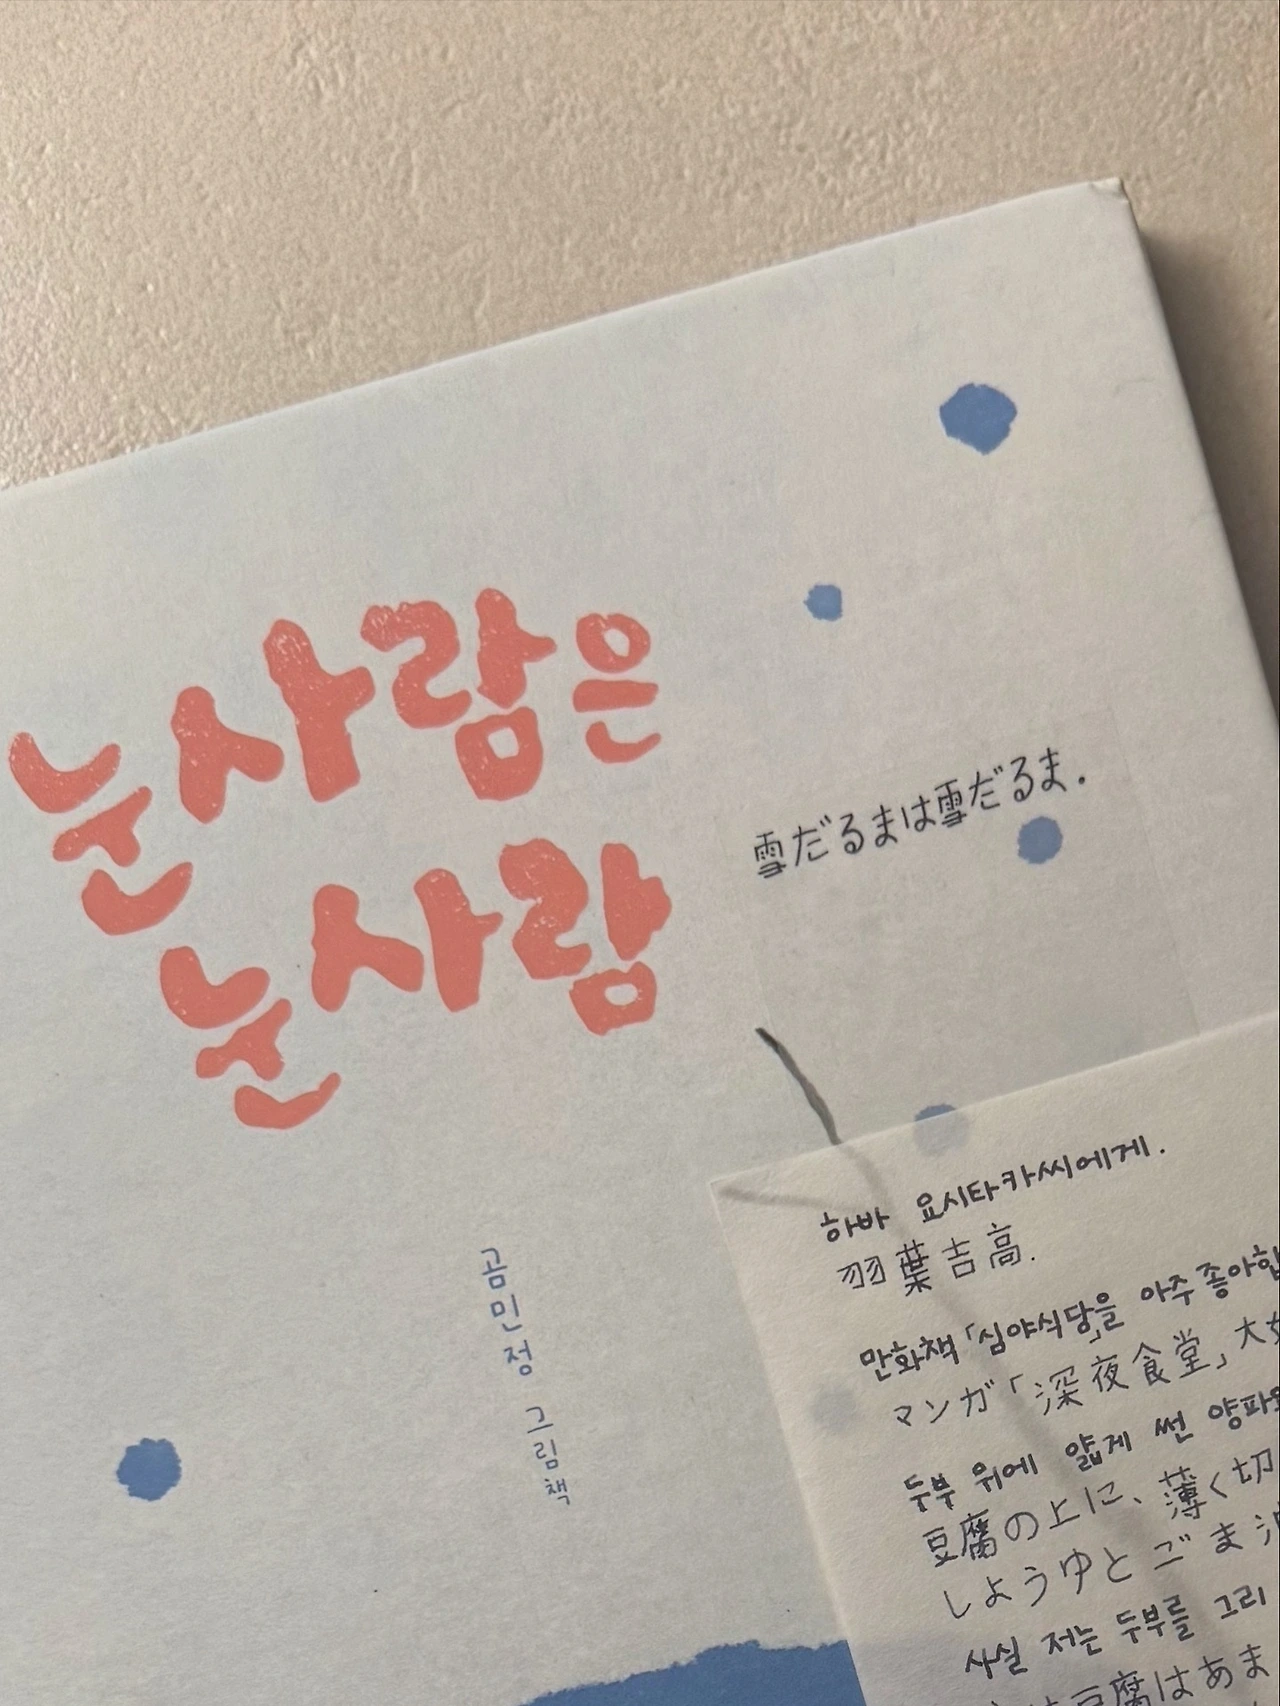 눈사람은
눈사람
雪だるまは雪だるま.
곰민정 그림책
하바 요시타카씨에게.
羽葉吉高.
만화책「심야식당」을 아주 좋아합
マンガ「深夜食堂」大
두부 위에 얇게 썬 양파
豆腐の上に、薄く切
しょうゆとごま
사실 저는 두부를 그리
豆腐はあま